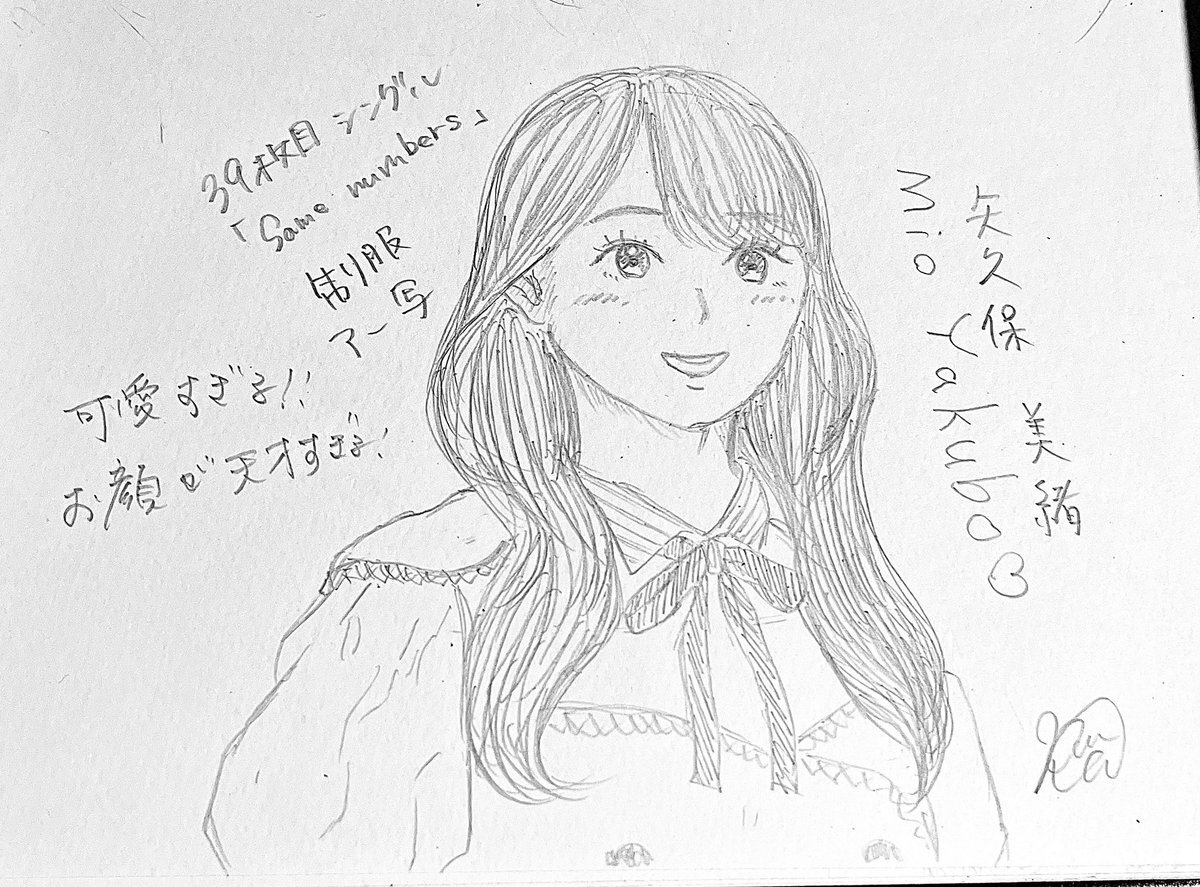 39枚目シングル
「Same numbers」
制服
アー写
可愛すぎる!!
お顔が天才すぎる!
矢久保 美緒
Mio Yakubo